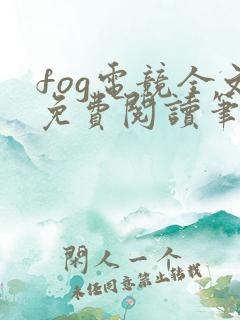 fog電競全文
免費閱讀筆
閑人一个
未經同意禁止轉載